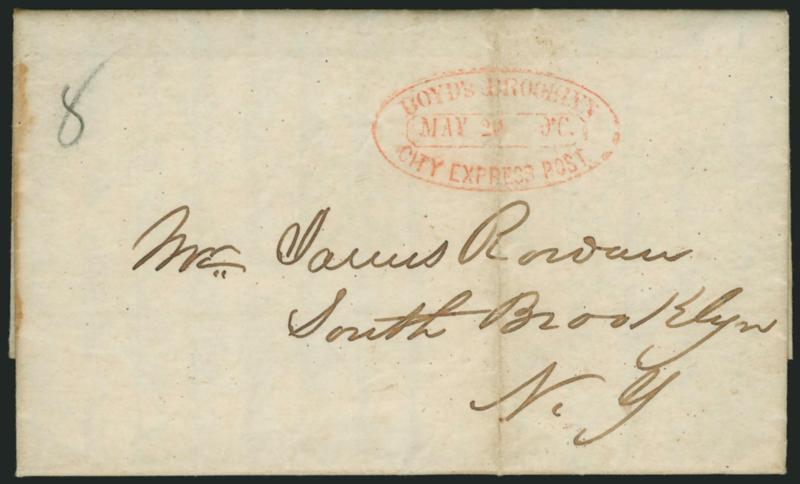 8
BOYD'S BROOKLYN
MAY 20 O'C.
CITY EXPRESS POST.
Mr. James Rowan
South Brooklyn
N. Y